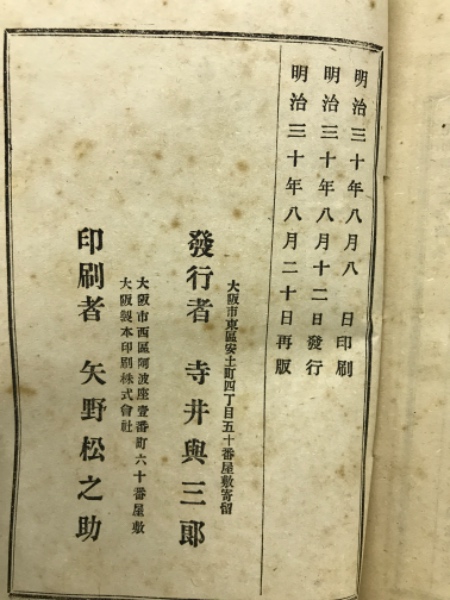 明治三十年八月八　日印刷
明治三十年八月十二日發行
明治三十年八月二十日再版
大阪市東區安土町四丁目五十番屋敷寄留
發行者　寺井與三郎
大阪市西區阿波座壹番町六十番屋敷
大阪製本印刷株式會社
印刷者　矢野松之助